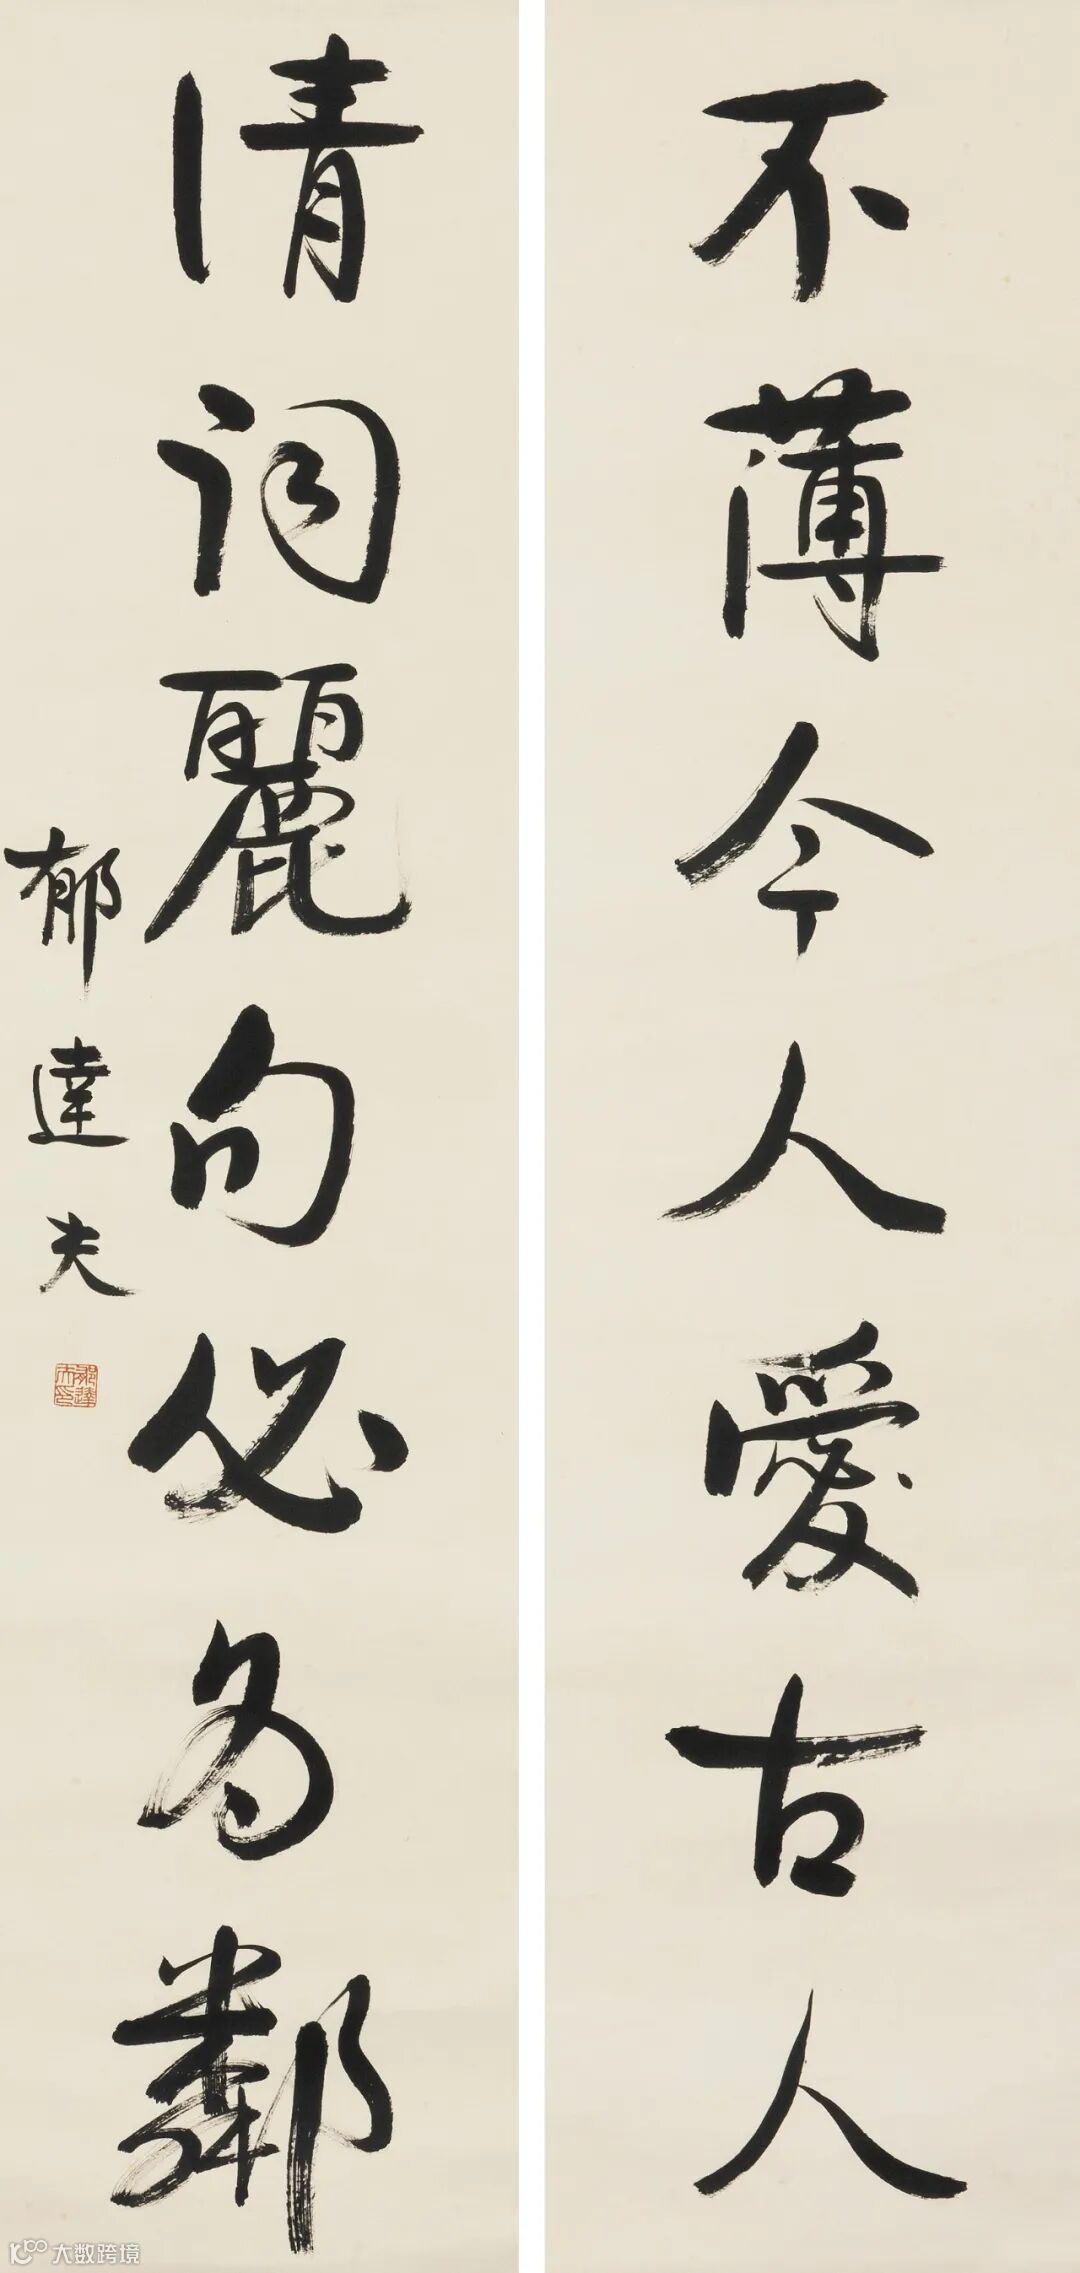 不薄今人愛古人
清詞麗句必為鄰
郁達夫
郁達夫印
大数跨境